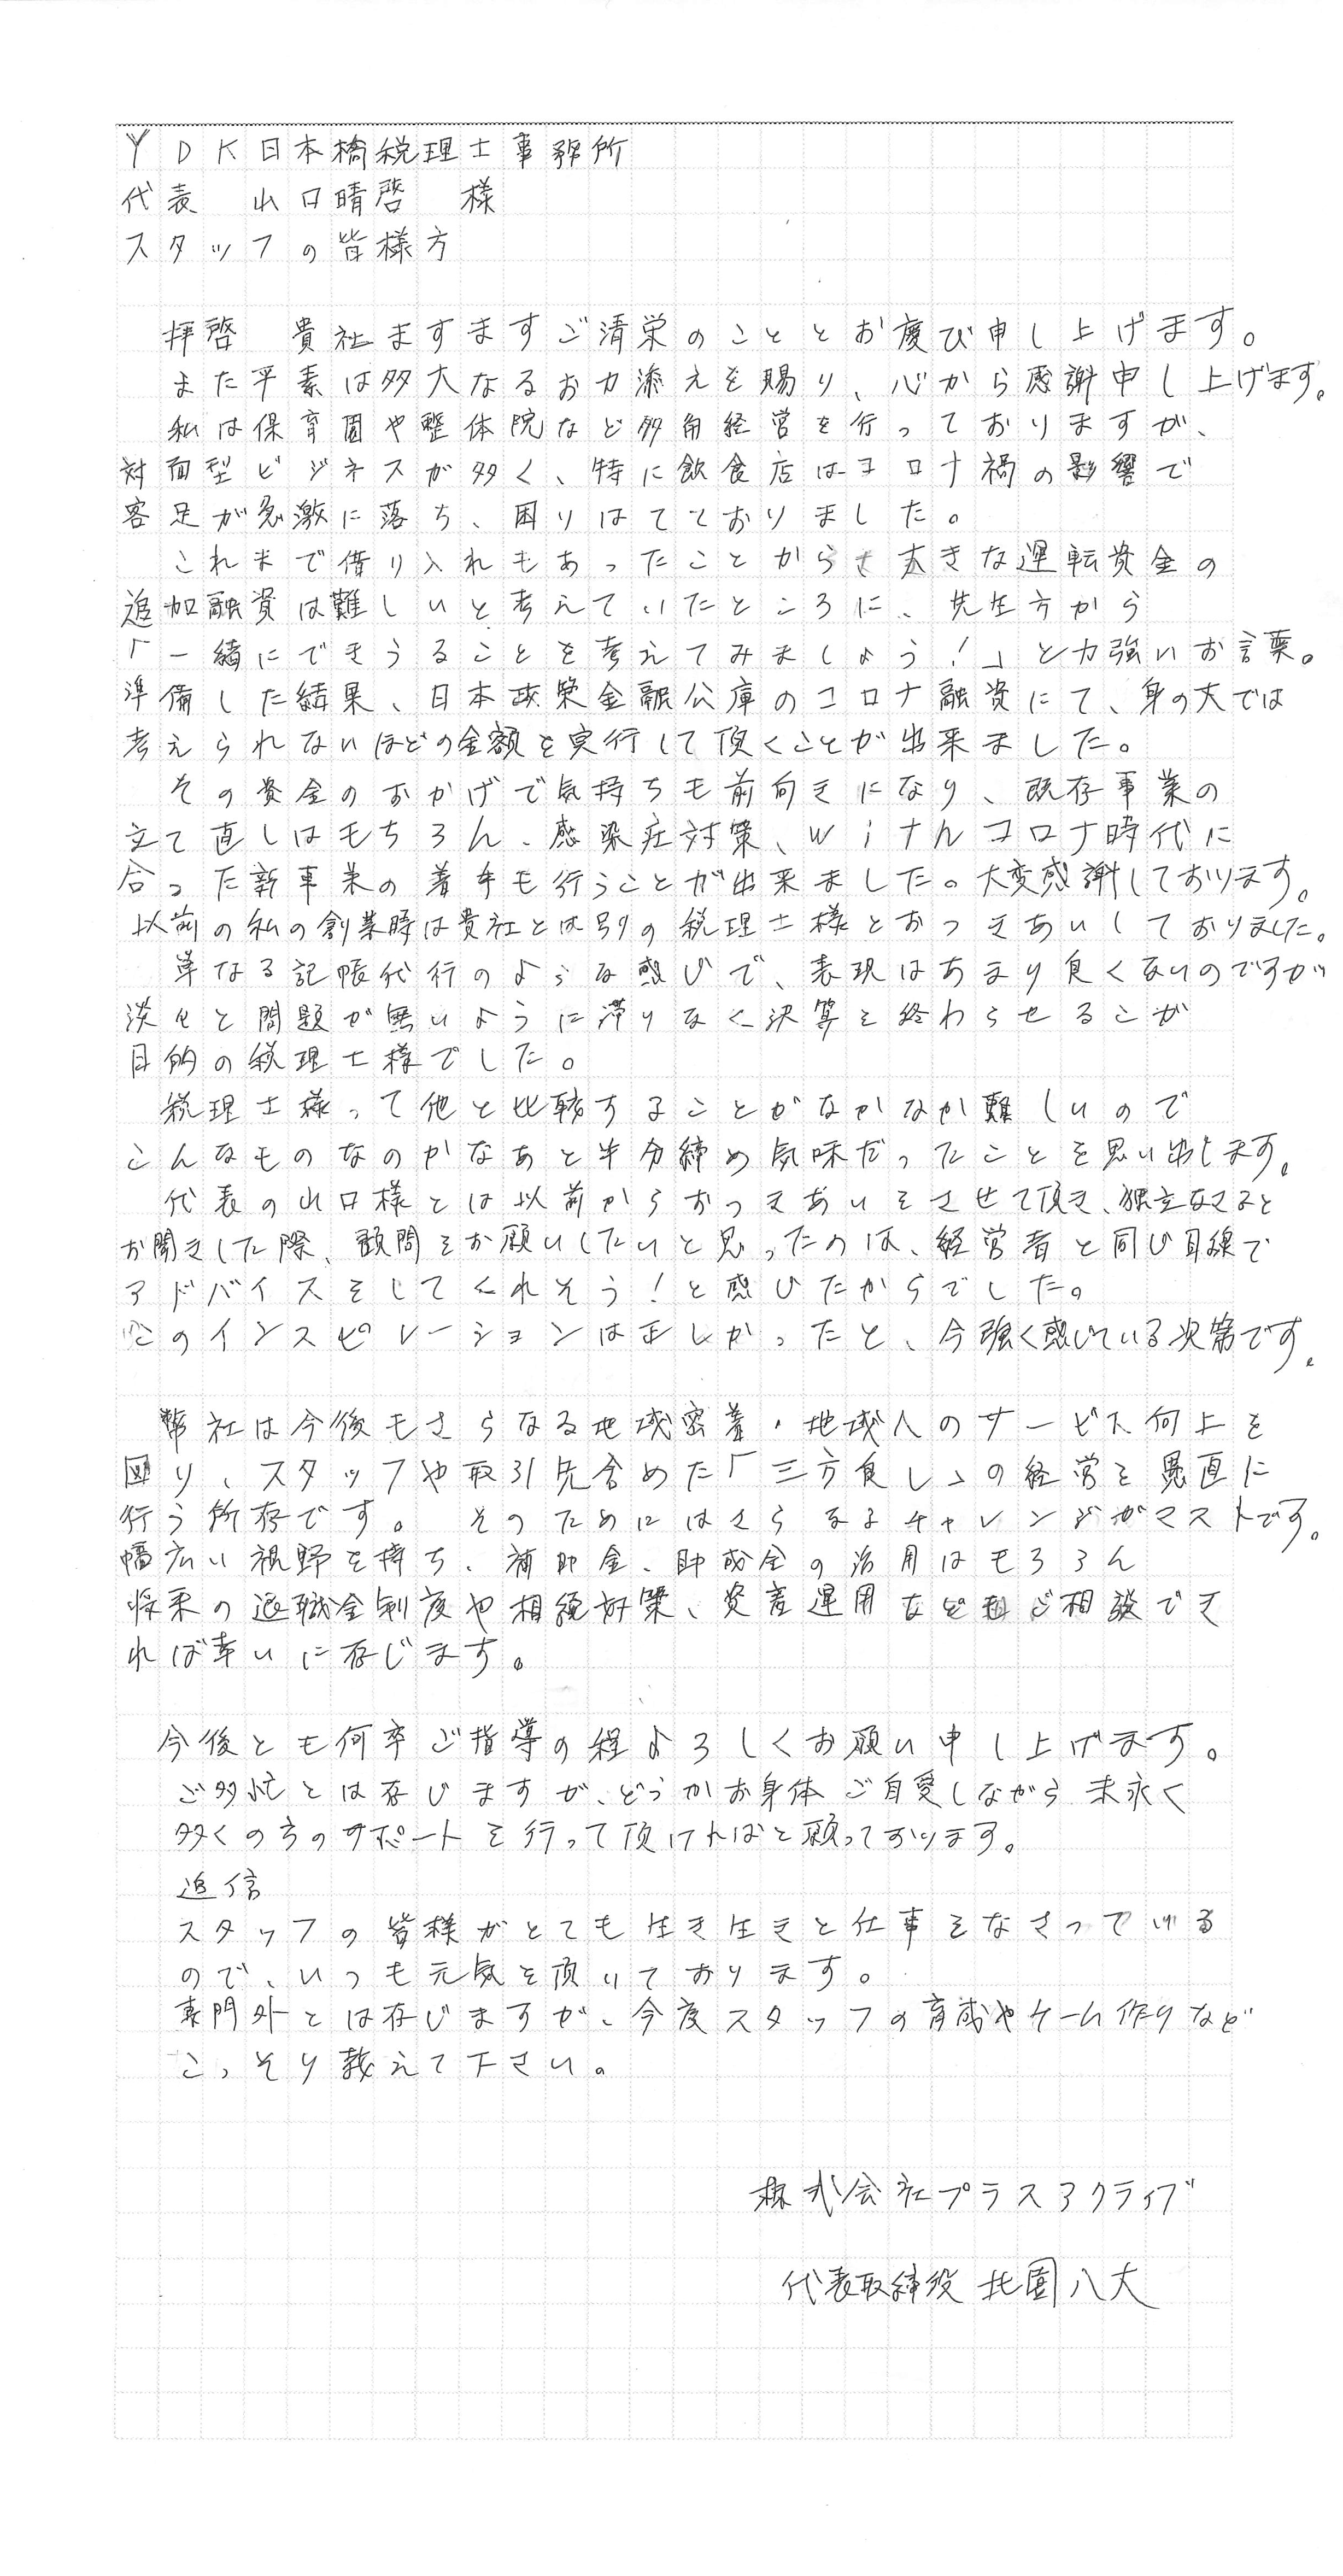 YDK日本橋税理士事務所
代表　山口晴啓　様
スタッフの皆様方
拝啓　貴社ますますご清栄のこととお慶び申し上げます。
また平素は多大なるお力添えを賜り、心から感謝申し上げます。
私は保育園や整体院など多角経営を行っておりますが、
対面型ビジネスが多く、特に飲食店はコロナ禍の影響で
客足が急激に落ち、困りはてておりました。
これまで借り入れもあったことから大きな運転資金の
追加融資は難しいと考えていたところに、先生方から
「一緒にできうることを考えてみましょう！」と力強いお言葉。
準備した結果、日本政策金融公庫のコロナ融資にて、身の丈では
考えられないほどの金額を実行して頂くことが出来ました。
その資金のおかげで気持ちも前向きになり、既存事業の
立て直しはもちろん、感染症対策、withコロナ時代に
合った新事業の着手も行うことが出来ました。大変感謝しております。
以前の私の創業時は貴社とは別の税理士様とおつきあいしておりました。
単なる記帳代行のような感じで、表現はあまり良くないのですが
淡々と問題が無いように滞りなく決算を終わらせるこが
目的の税理士様でした。
税理士様って他と比較することがなかなか難しいので
こんなものなのかなあと半分締め気味だったことを思い出します。
代表の山口様とは以前からおつきあいをさせて頂き、独立なさると
お聞きした際、顧問をお願いしたいと思ったのは、経営者と同じ目線で
アドバイスをしてくれそう！と感じたからでした。
このインスピレーションは正しかったと、今強く感じている次第です。
弊社は今後もさらなる地域密着・地域人のサービス向上を
図り、スタッフや取引先含めた「三方良し」の経営を愚直に
行う所存です。　そのためにはさらなるチャレンジがマストです。
幅広い視野を持ち、補助金、助成金の活用はもろろん
将来の退職金制度や相続対策、資産運用などもご相談でき
れば幸いに存じます。
今後とも何卒ご指導の程よろしくお願い申し上げます。
ご多忙とは存じますが、どうかお身体ご自愛しながら末永く
多くの方のサポートを行って頂ければと願っております。
追信
スタッフの皆様がとても生き生きと仕事をなさっている
ので、いつも元気を頂いております。
専門外とは存じますが、今度スタッフの育成やチーム作りなど
こっそり教えて下さい。
株式会社プラスアクティブ
代表取締役 北園八丈